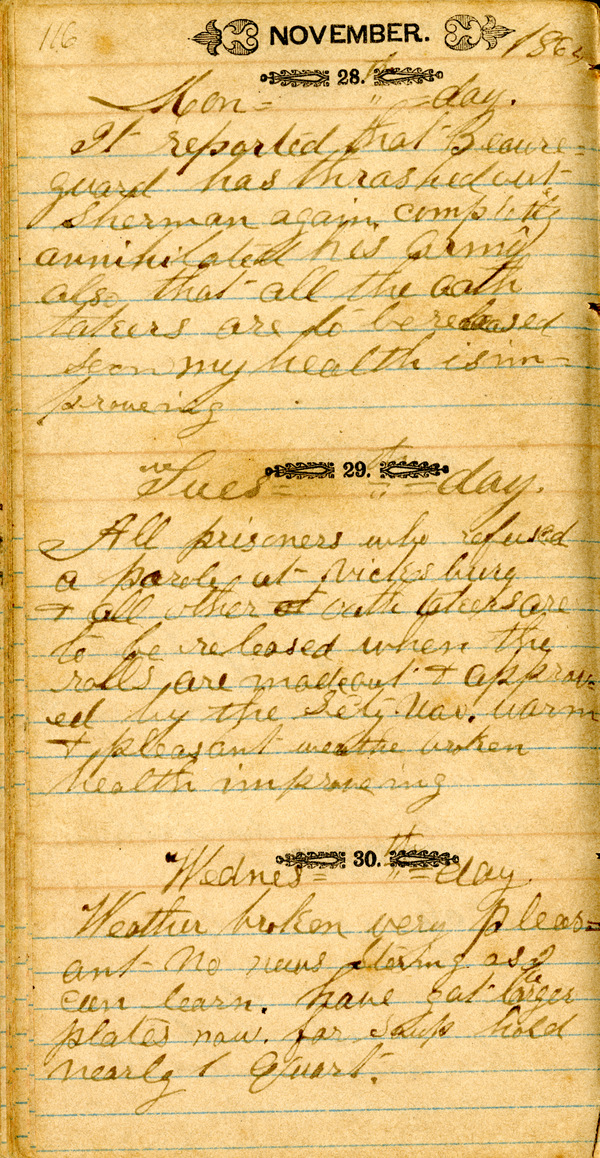 116 NOVEMBER. 1864
28. th
Mon= " =day.
It reported that Beaure=
guard has thrashed out
Sherman again, completly
annihilated his army
also that all the oath
takers are to be released
soon my health is im=
proveing
29. th
Tues= " =day.
All prisoners who refused
a parole at Vicksburg
+ all other oath takers are
to be released when the
rolls are made out + approv=
ed by the Nav. warm
+ pleasant broken
health improveing
30. th
Wednes= " =day
Weather broken very pleas=
ant No news stiring as I
can learn. have got larger
plates now. for Soup hold
nearly 1 Quart.